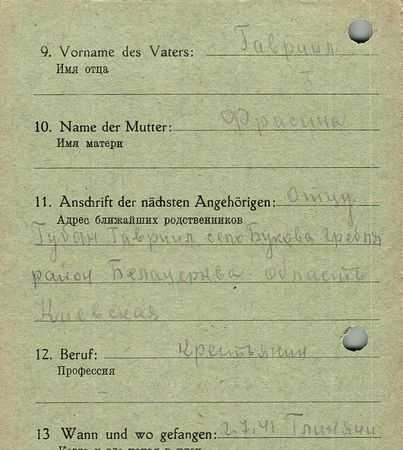 9. Vorname des Vaters: Гавриил
Имя отца
10. Name der Mutter: Фрасина
Имя матери
11. Anschrift der nächsten Angehörigen: Отцу
Адрес ближайших родственников
Губан Гавриил село Букова Гребля
район Белацерква область
Киевская
12. Beruf: Крестьянин
Профессия
13 Wann und wo gefangen: 2.7.41 Глиняни